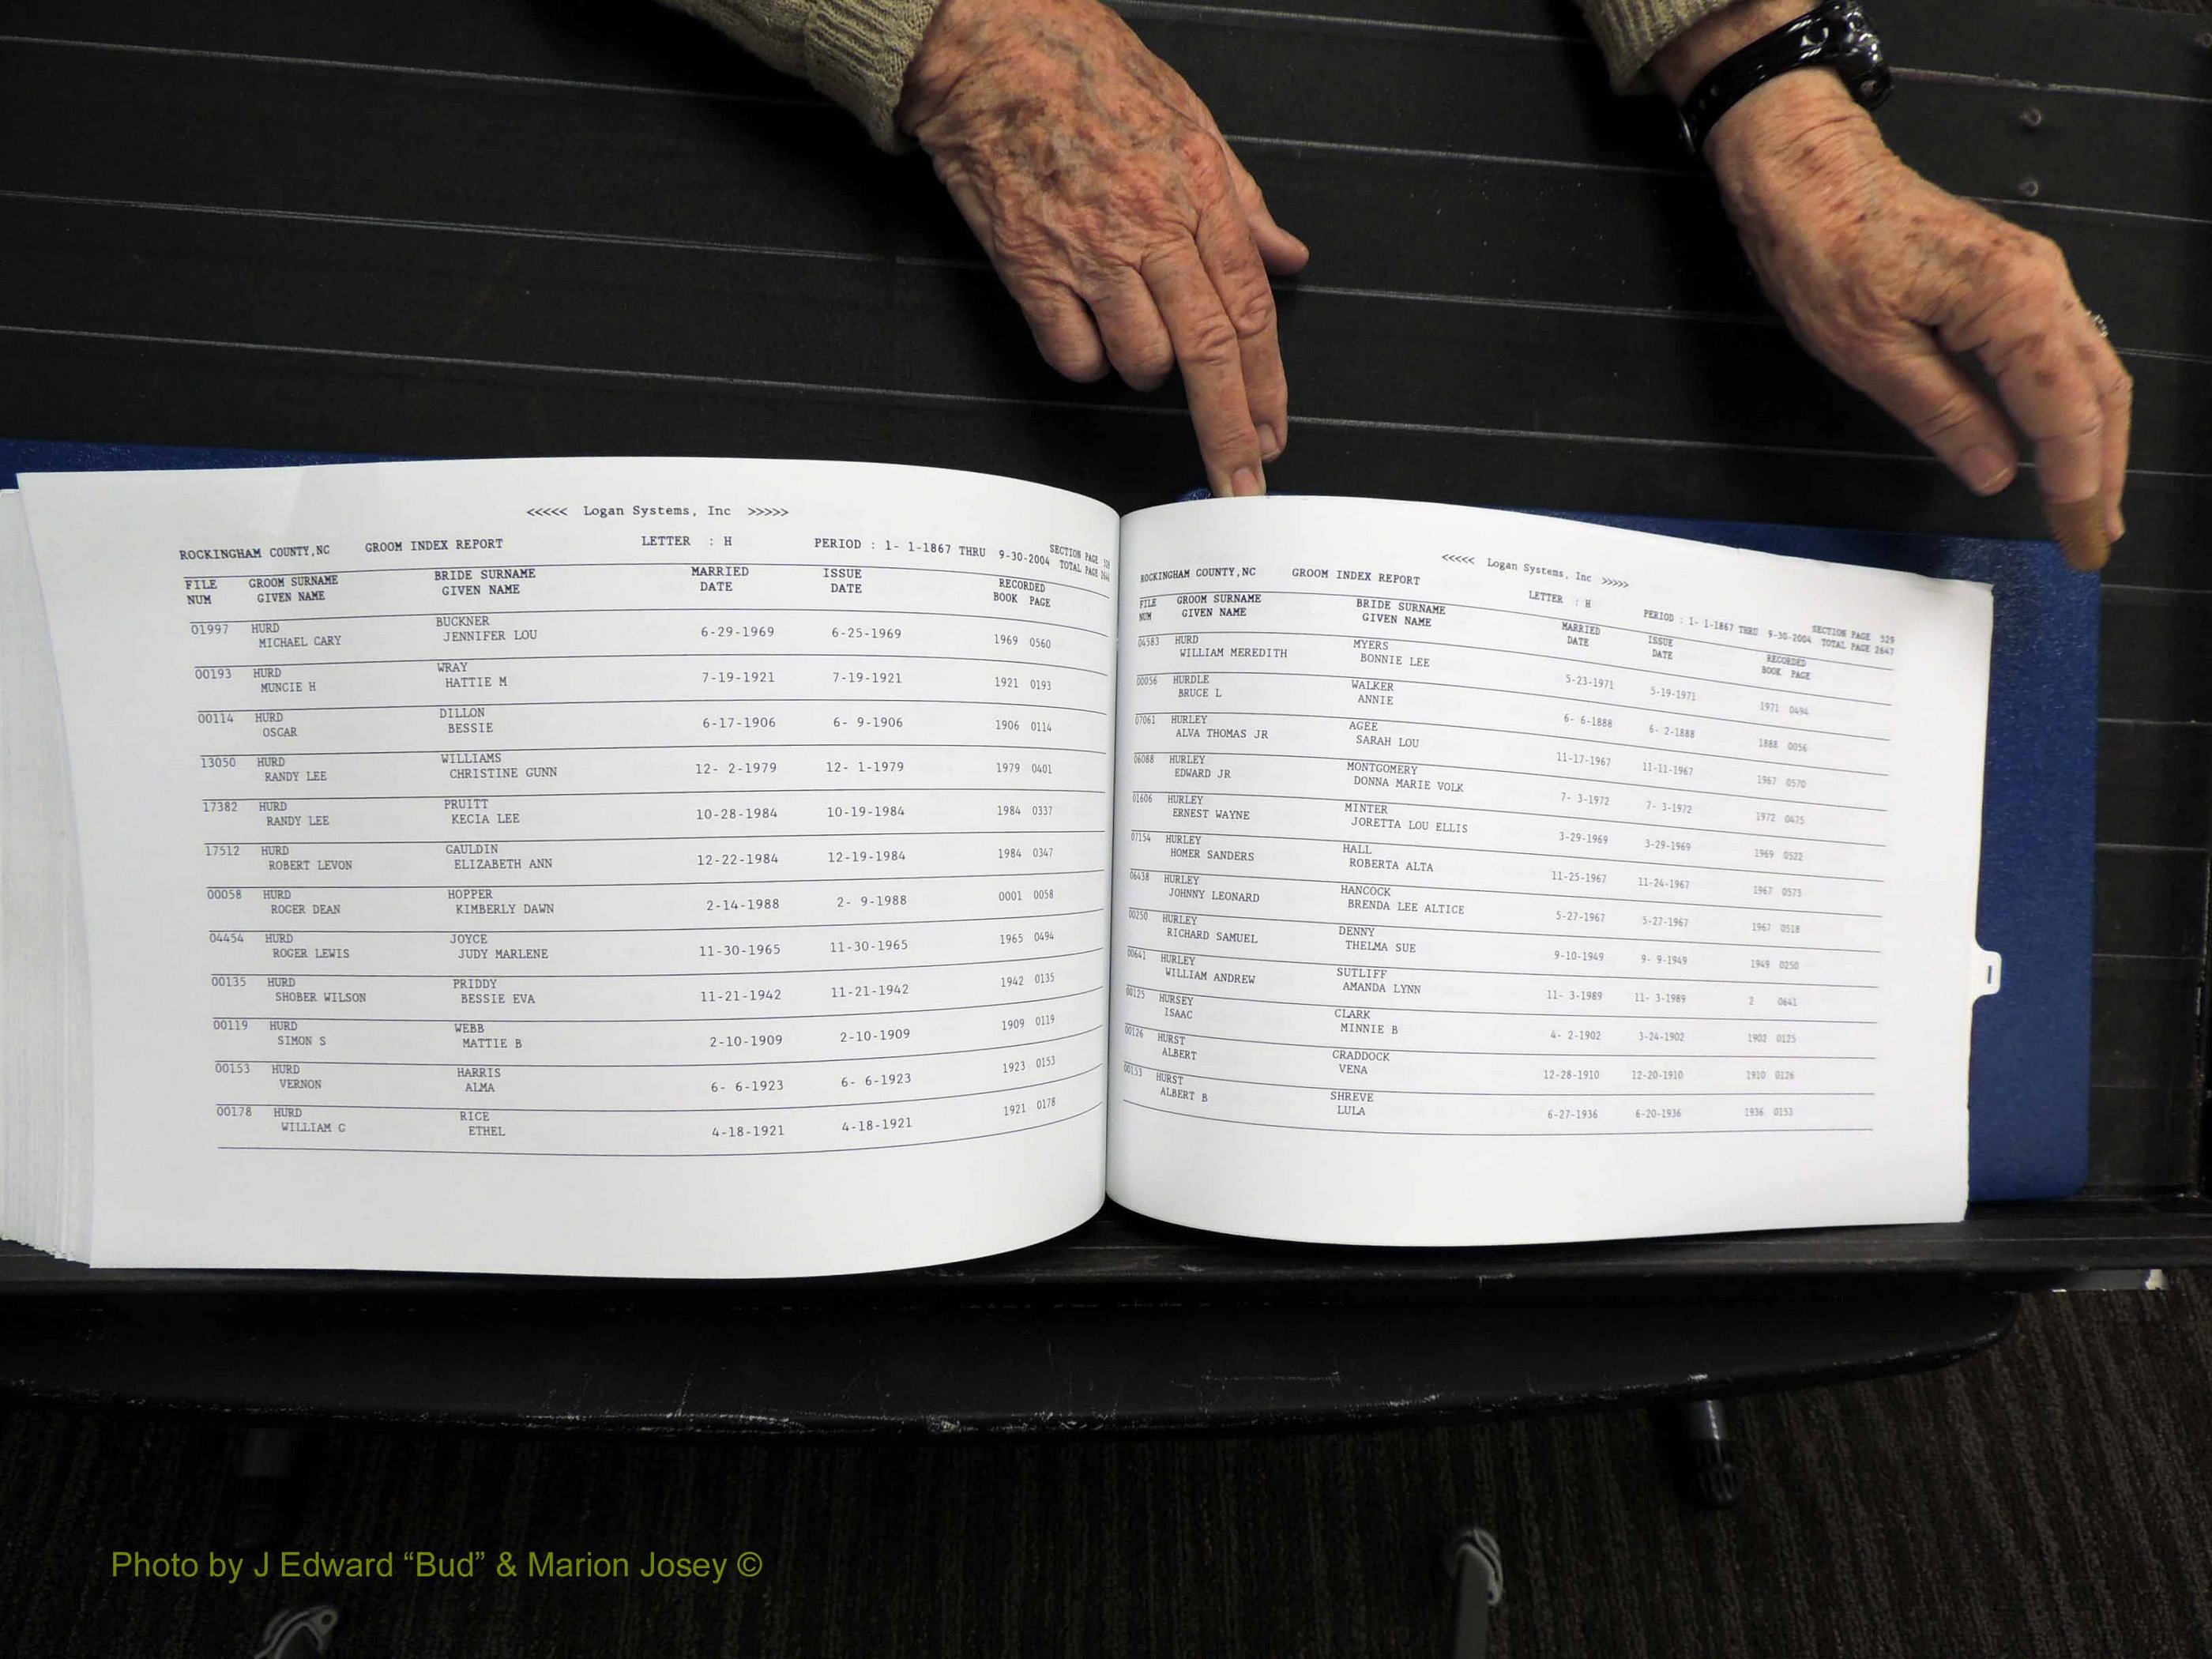 <<<<< Logan Systems, Inc >>>>>
ROCKINGHAM COUNTY,NC GROOM INDEX REPORT LETTER : H PERIOD : 1- 1-1867 THRU 9-30-2004 SECTION PAGE
TOTAL PAGE
FILE GROOM SURNAME BRIDE SURNAME MARRIED ISSUE RECORDED
NUM GIVEN NAME GIVEN NAME DATE DATE BOOK PAGE
01997 HURD BUCKNER 6-29-1969 6-25-1969 1969 0560
MICHAEL CARY JENNIFER LOU
00193 HURD WRAY 7-19-1921 7-19-1921 1921 0193
MUNCIE H HATTIE M
00114 HURD DILLON 6-17-1906 6- 9-1906 1906 0114
OSCAR BESSIE
13050 HURD WILLIAMS 12- 2-1979 12- 1-1979 1979 0401
RANDY LEE CHRISTINE GUNN
17382 HURD PRUITT 10-28-1984 10-19-1984 1984 0337
RANDY LEE KECIA LEE
17512 HURD GAULDIN 12-22-1984 12-19-1984 1984 0347
ROBERT LEVON ELIZABETH ANN
00058 HURD HOPPER 2-14-1988 2- 9-1988 0001 0058
ROGER DEAN KIMBERLY DAWN
04454 HURD JOYCE 11-30-1965 11-30-1965 1965 0494
ROGER LEWIS JUDY MARLENE
00135 HURD PRIDDY 11-21-1942 11-21-1942 1942 0135
SHOBER WILSON BESSIE EVA
00119 HURD WEBB 2-10-1909 2-10-1909 1909 0119
SIMON S MATTIE B
00153 HURD HARRIS 6- 6-1923 6- 6-1923 1923 0153
VERNON ALMA
00178 HURD RICE 4-18-1921 4-18-1921 1921 0178
WILLIAM G ETHEL
<<<<< Logan Systems, Inc >>>>>
ROCKINGHAM COUNTY,NC GROOM INDEX REPORT LETTER : H PERIOD : 1- 1-1867 THRU 9-30-2004 SECTION PAGE 529
TOTAL PAGE 2647
FILE GROOM SURNAME BRIDE SURNAME MARRIED ISSUE RECORDED
NUM GIVEN NAME GIVEN NAME DATE DATE BOOK PAGE
04583 HURD MYERS 5-23-1971 5-19-1971 1971 0494
WILLIAM MEREDITH BONNIE LEE
00056 HURDLE WALKER 6- 6-1888 6- 2-1888 1888 0056
BRUCE L ANNIE
07061 HURLEY AGEE 11-17-1967 11-11-1967 1967 0570
ALVA THOMAS JR SARAH LOU
06088 HURLEY MONTGOMERY 7- 3-1972 7- 3-1972 1972 0475
EDWARD JR DONNA MARIE VOLK
01606 HURLEY MINTER 3-29-1969 3-29-1969 1969 0522
ERNEST WAYNE JORETTA LOU ELLIS
07154 HURLEY HALL 11-25-1967 11-24-1967 1967 0573
HOMER SANDERS ROBERTA ALTA
06438 HURLEY HANCOCK 5-27-1967 5-27-1967 1967 0518
JOHNNY LEONARD BRENDA LEE ALTICE
00250 HURLEY DENNY 9-10-1949 9- 9-1949 1949 0250
RICHARD SAMUEL THELMA SUE
00641 HURLEY SUTLIFF 11- 3-1989 11- 3-1989 2 0641
WILLIAM ANDREW AMANDA LYNN
00125 HURSEY CLARK 4- 2-1902 3-24-1902 1902 0125
ISAAC MINNIE B
00126 HURST CRADDOCK 12-28-1910 12-20-1910 1910 0126
ALBERT VENA
00153 HURST SHREVE 6-27-1936 6-20-1936 1936 0153
ALBERT B LULA
I
Photo by J Edward “Bud” & Marion Josey ©